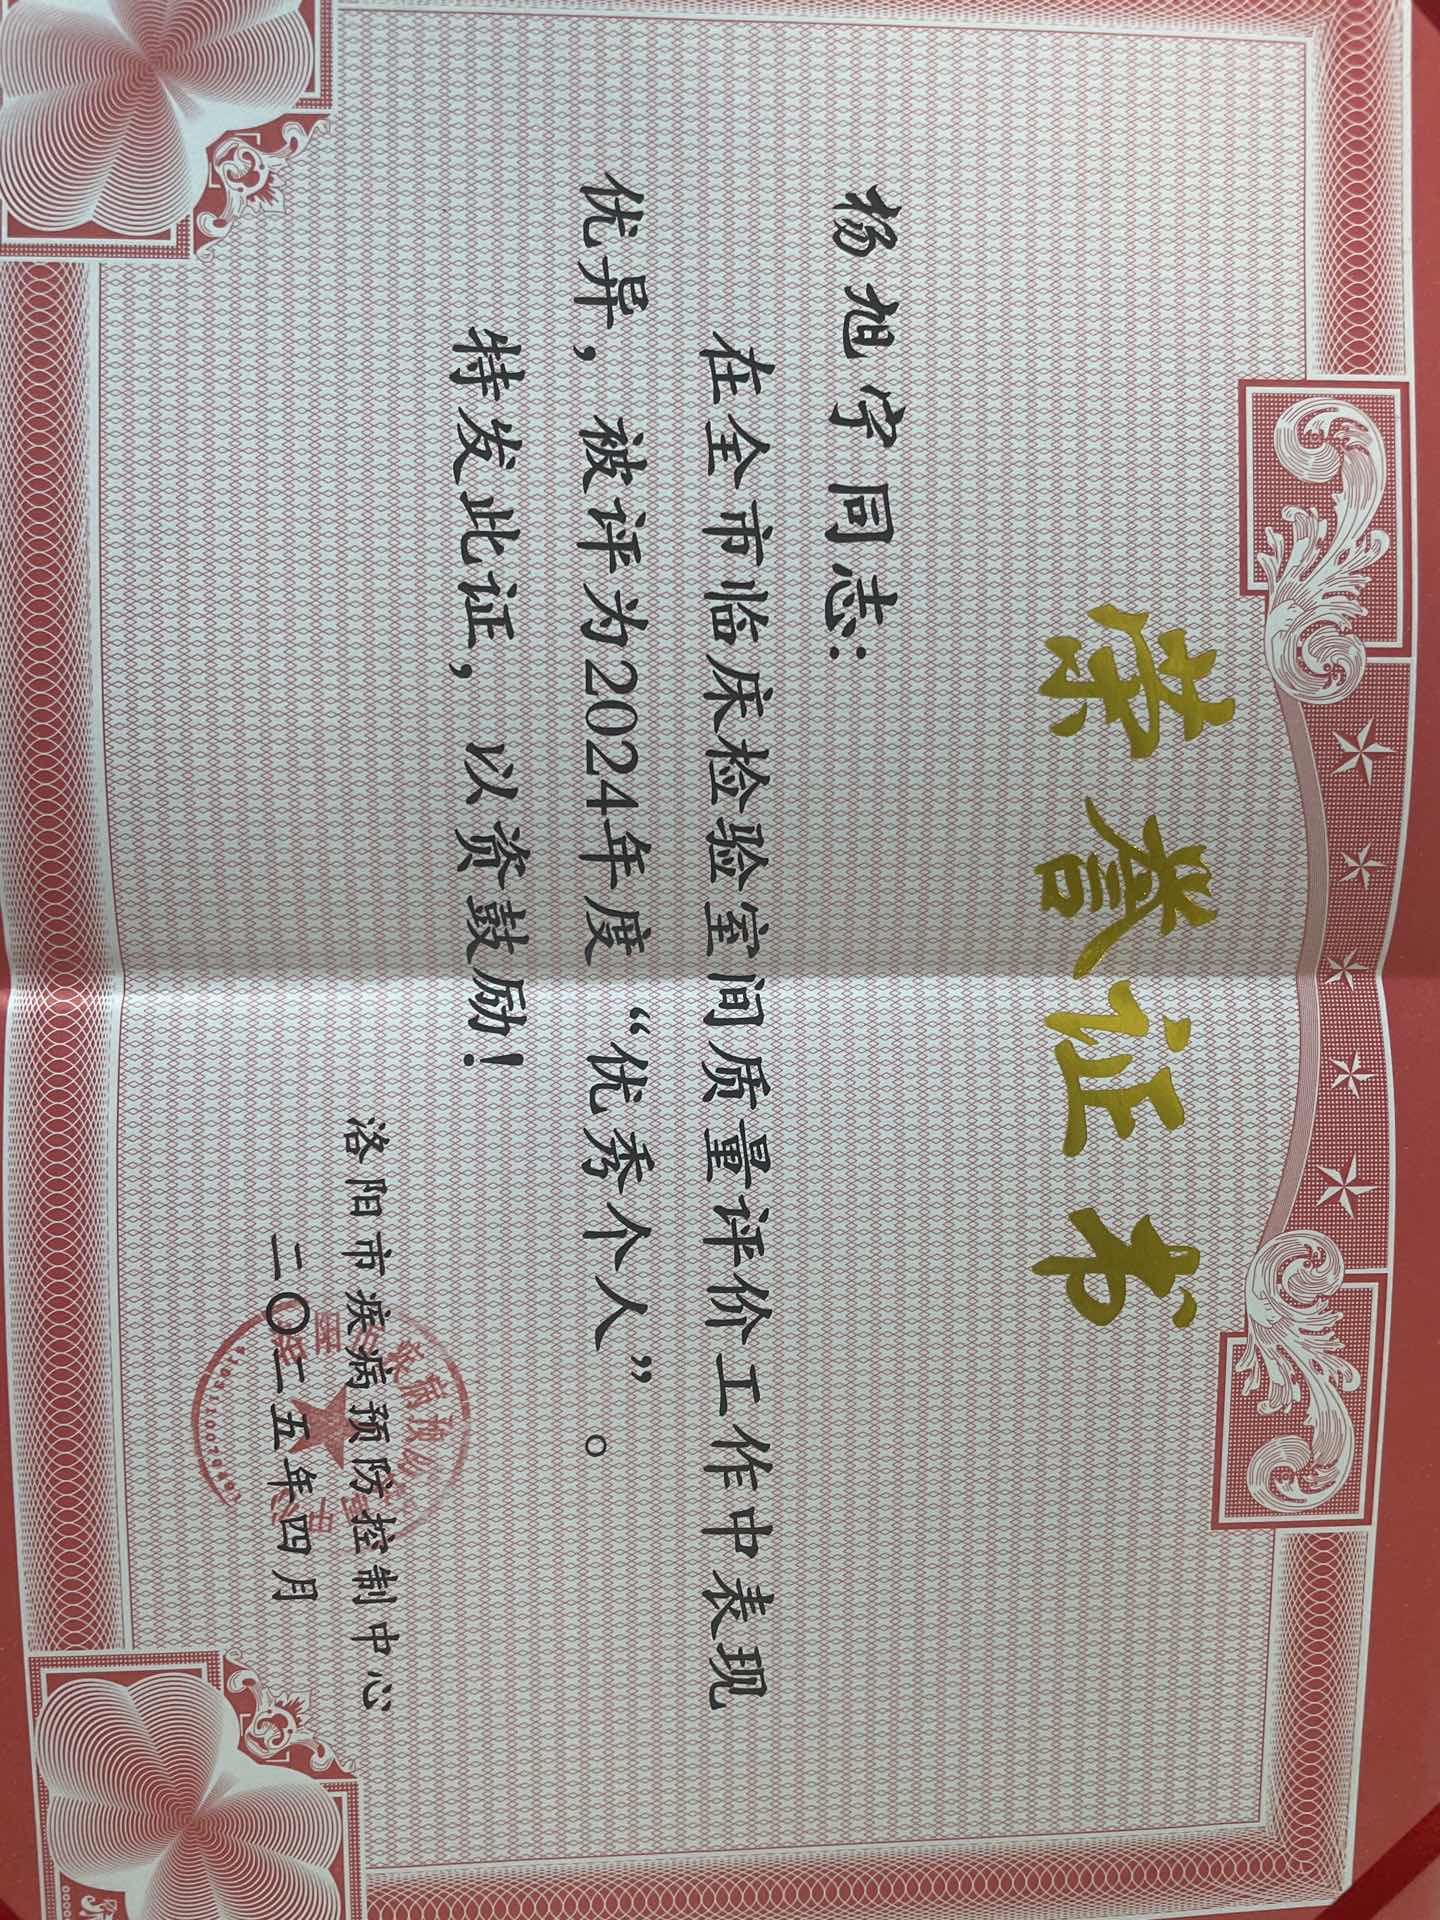 荣誉证书
杨旭宇同志：
在全市临床检验室间质量评价工作中表现
优异，被评为2024年度“优秀个人”。
特发此证，以资鼓励！
洛阳市疾病预防控制中心
二〇二五年四月